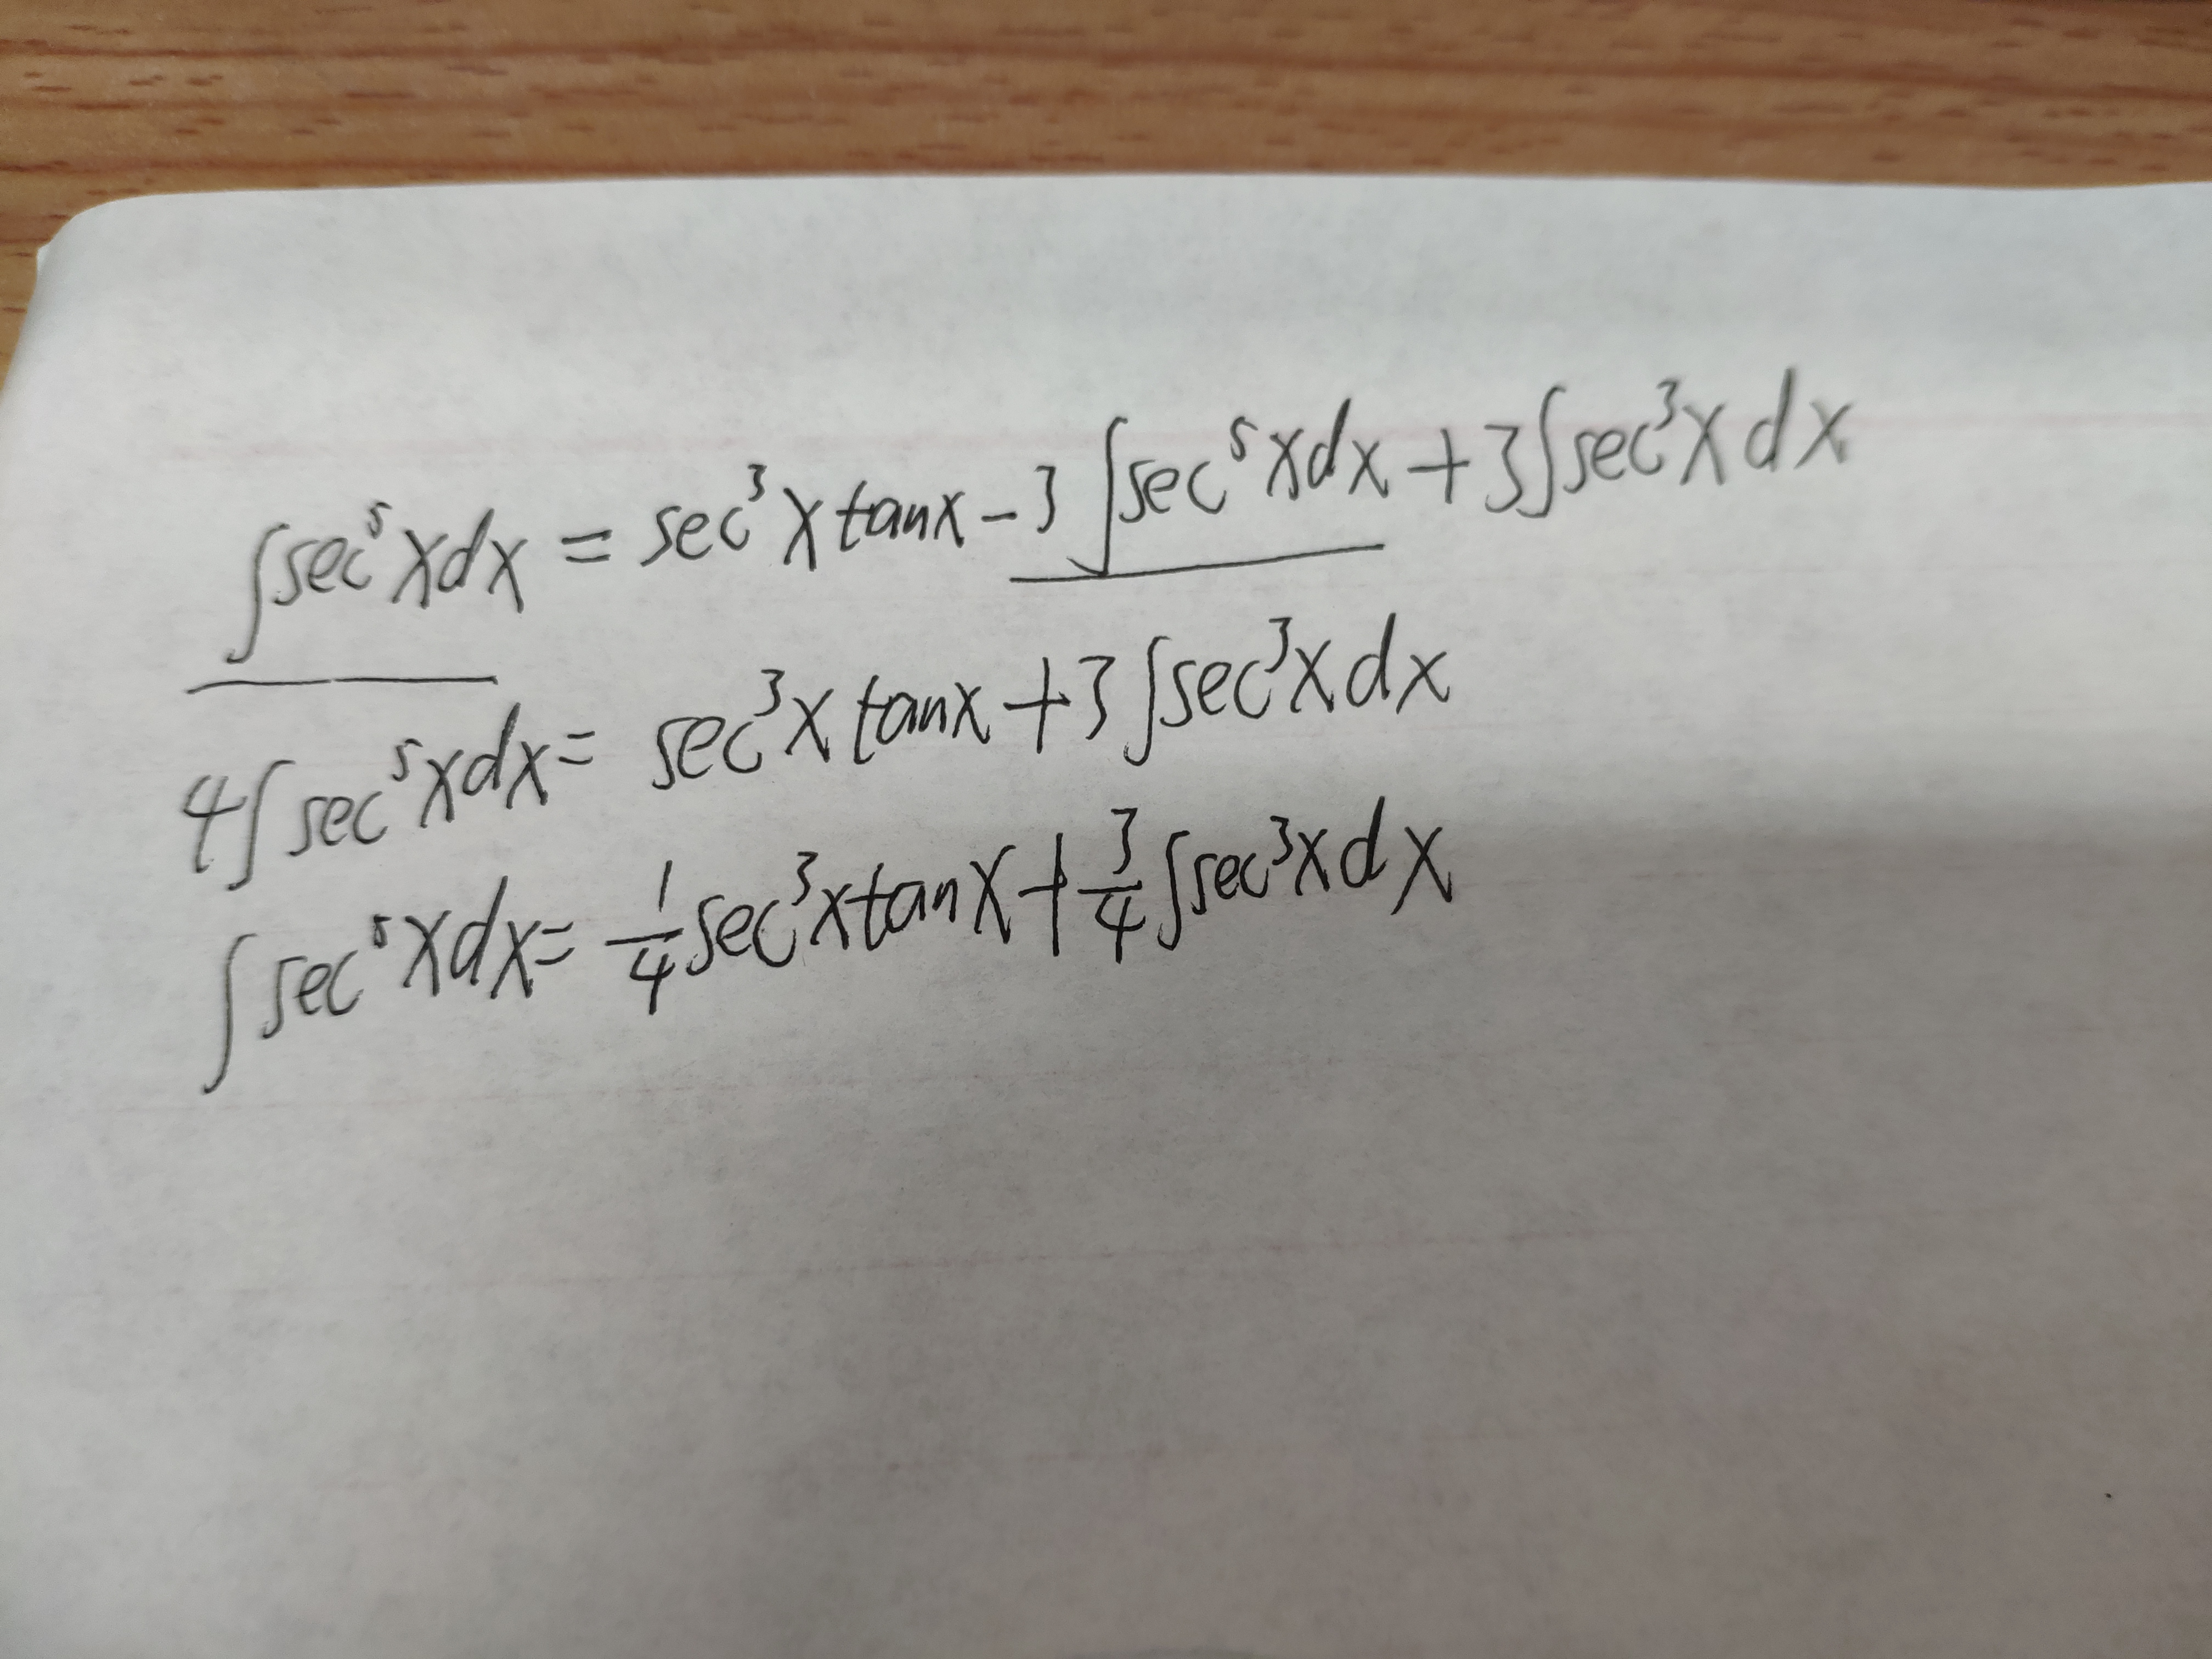 ∫sec⁵xdx = sec³xtanx-3∫sec⁵xdx+3∫sec³xdx
4∫sec⁵xdx= sec³xtanx+3∫sec³xdx
∫sec⁵xdx= 1/4 sec³xtanx+3/4∫sec³xdx